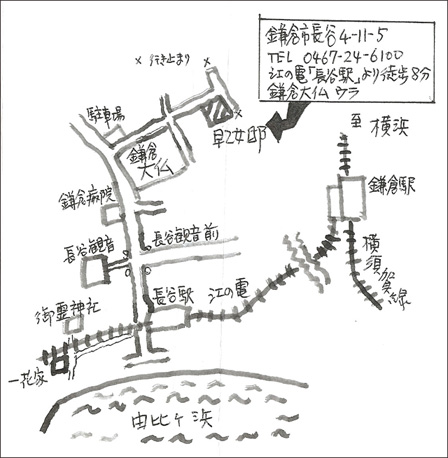 鎌倉市長谷4-11-5
TEL 0467-24-6100
江の電「長谷駅」より徒歩8分
鎌倉大仏ウラ
行き止まり
駐車場
鎌倉
大仏
早乙女邸
至 横浜
鎌倉駅
鎌倉病院
長谷観音
長谷観音前
横須賀線
長谷駅
江の電
御霊神社
一花家
由比ヶ浜